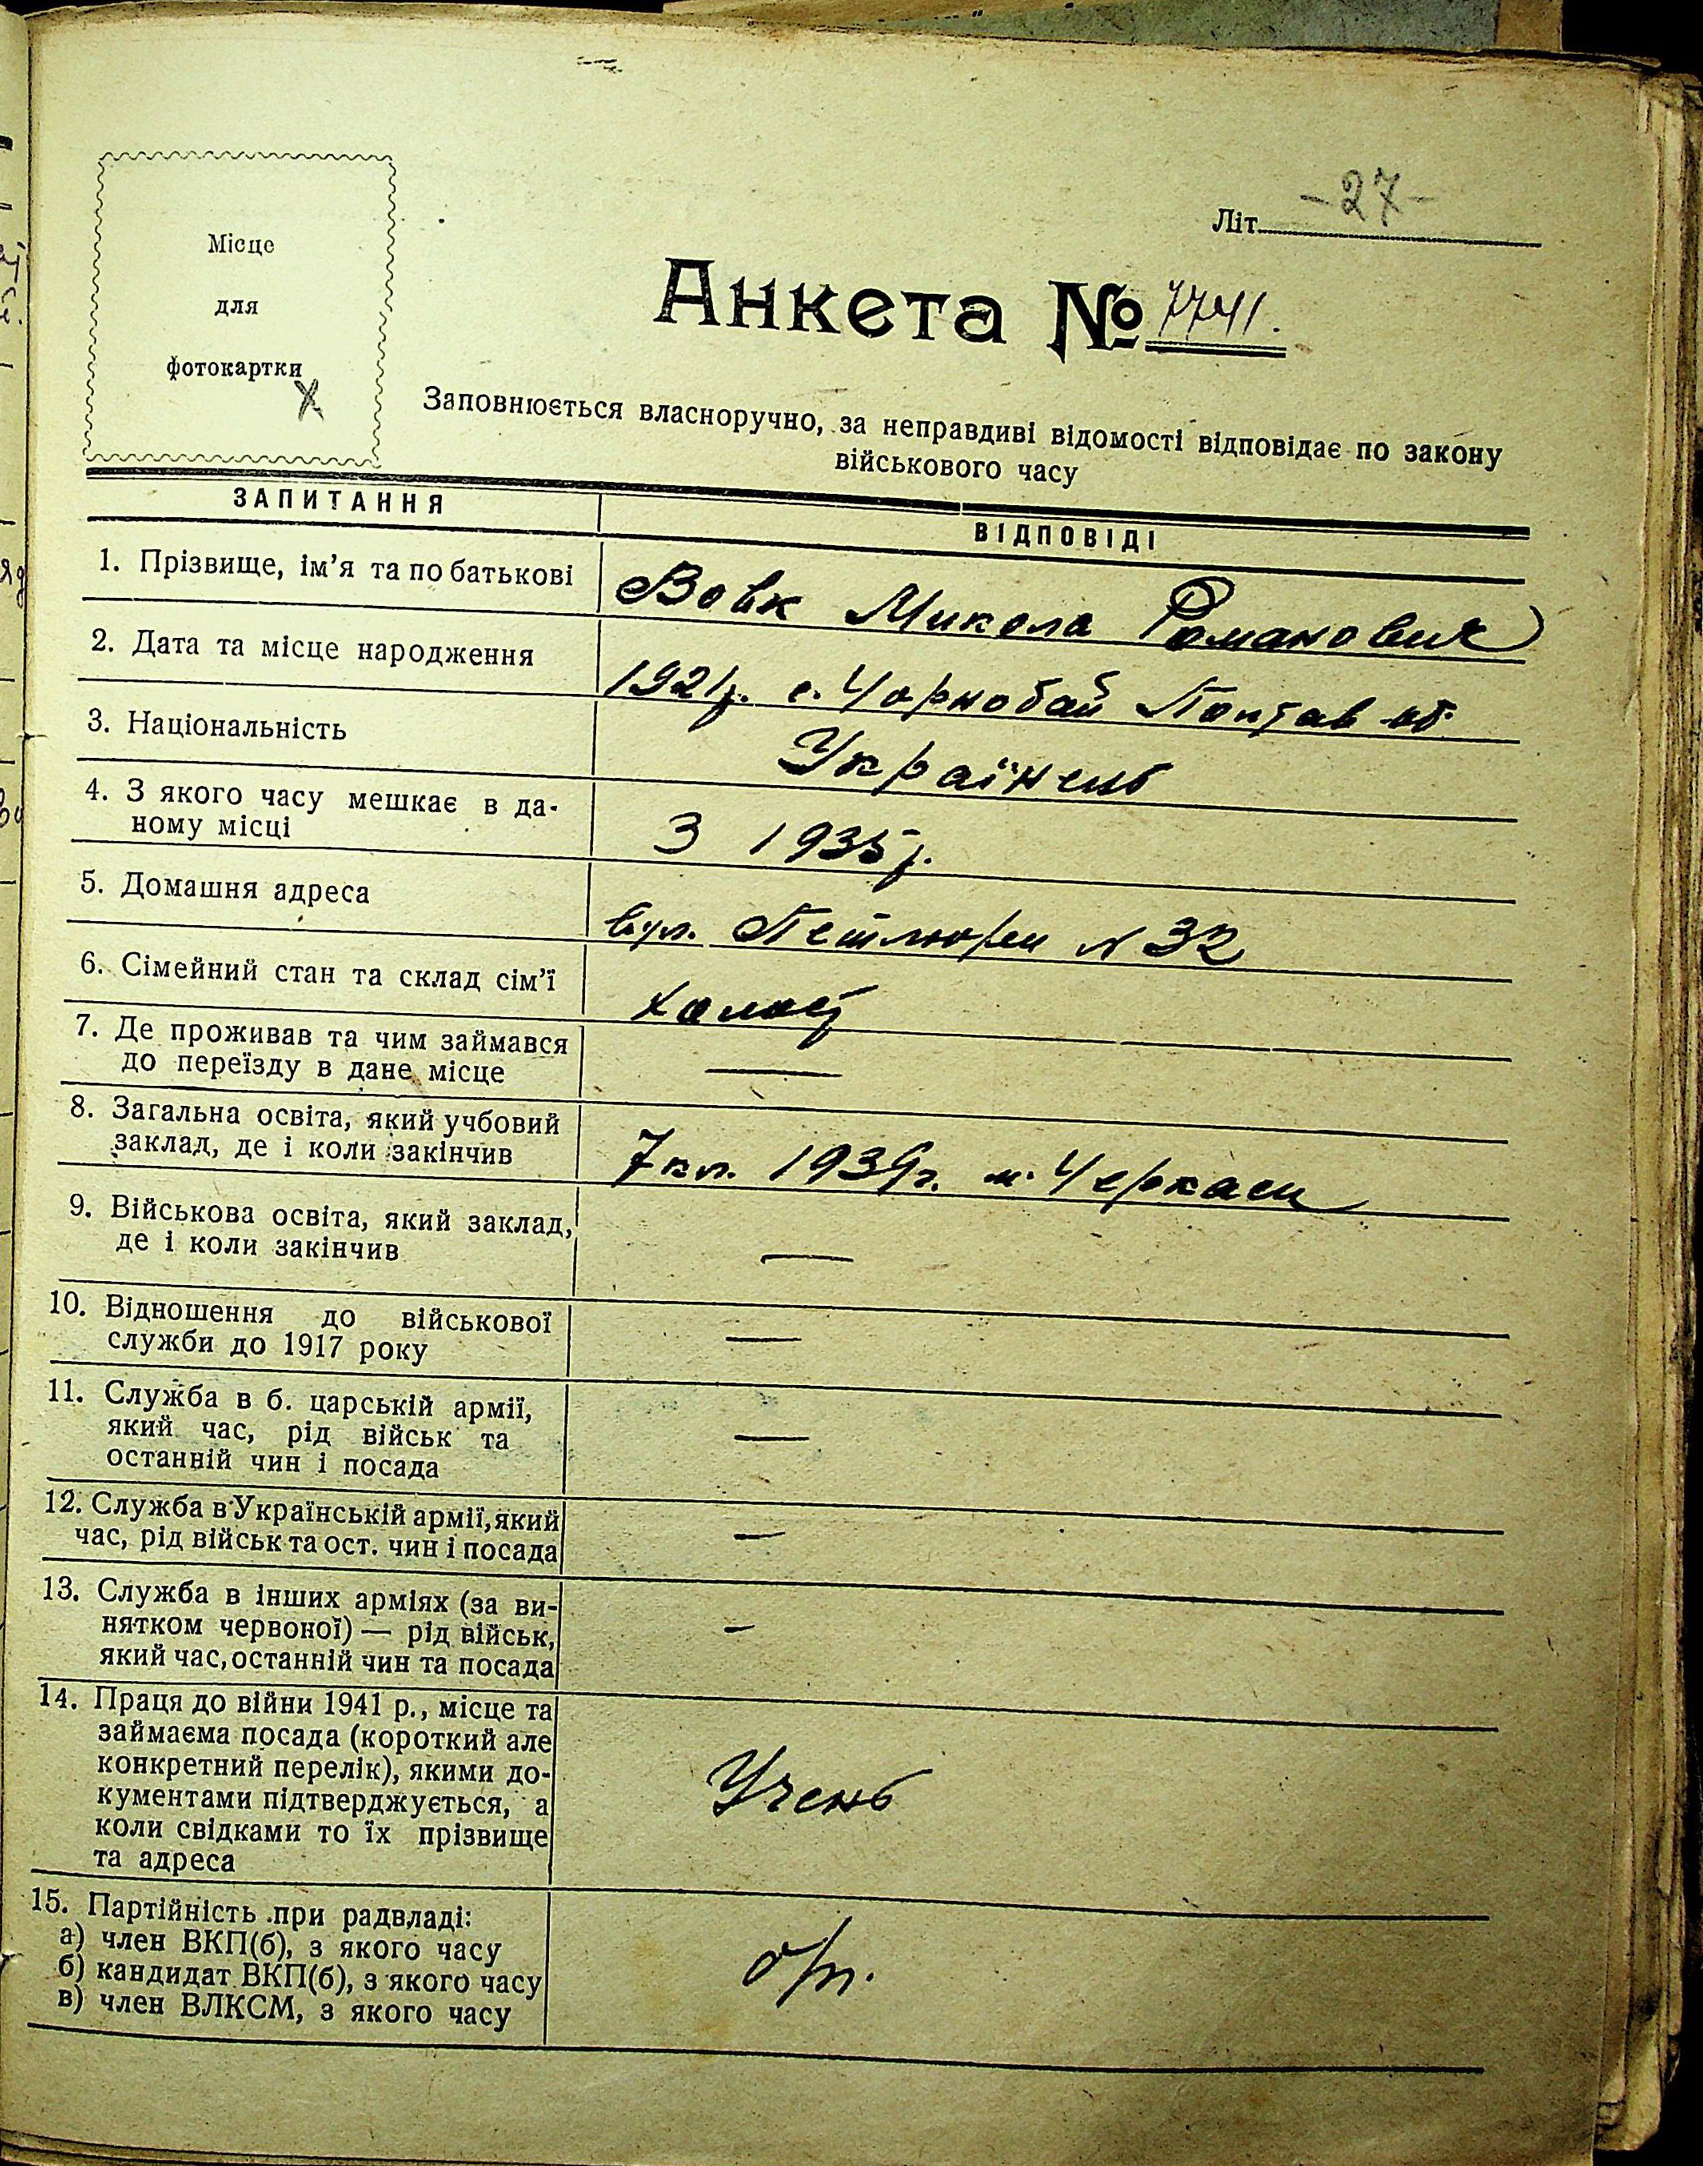 Місце
для
фотокартки
Літ. -27-
Анкета № 7741.
Заповнюється власноручно, за неправдиві відомості відповідає по закону
військового часу
ЗАПИТАННЯ
ВІДПОВІДІ
1. Прізвище, ім'я та по батькові
Вовк Микола Романович
2. Дата та місце народження
1921р. с. Чорнобай Полтав об.
3. Національність
Українець
4. З якого часу мешкає в да-
ному місці
З 1935р.
5. Домашня адреса
вул. Петлюри N 32
6. Сімейний стан та склад сім'ї
7. Де проживав та чим займався
до переїзду в дане місце
—
8. Загальна освіта, який учбовий
заклад, де і коли закінчив
7 кл. 1939г. м. Черкаси
9. Військова освіта, який заклад,
де і коли закінчив
—
10. Відношення до військової
служби до 1917 року
—
11. Служба в б. царській армії,
який час, рід військ та
останній чин і посада
—
12. Служба в Українській армії, який
час, рід військ та ост. чин і посада
—
13. Служба в інших арміях (за ви-
нятком червоної) — рід військ,
який час, останній чин та посада
-
14. Праця до війни 1941 р., місце та
займаєма посада (короткий але
конкретний перелік), якими до-
кументами підтверджується, а
коли свідками то їх прізвище
та адреса
Учень
15. Партійність при радвладі:
а) член ВКП(б), з якого часу
б) кандидат ВКП(б), з якого часу
в) член ВЛКСМ, з якого часу
б/п.